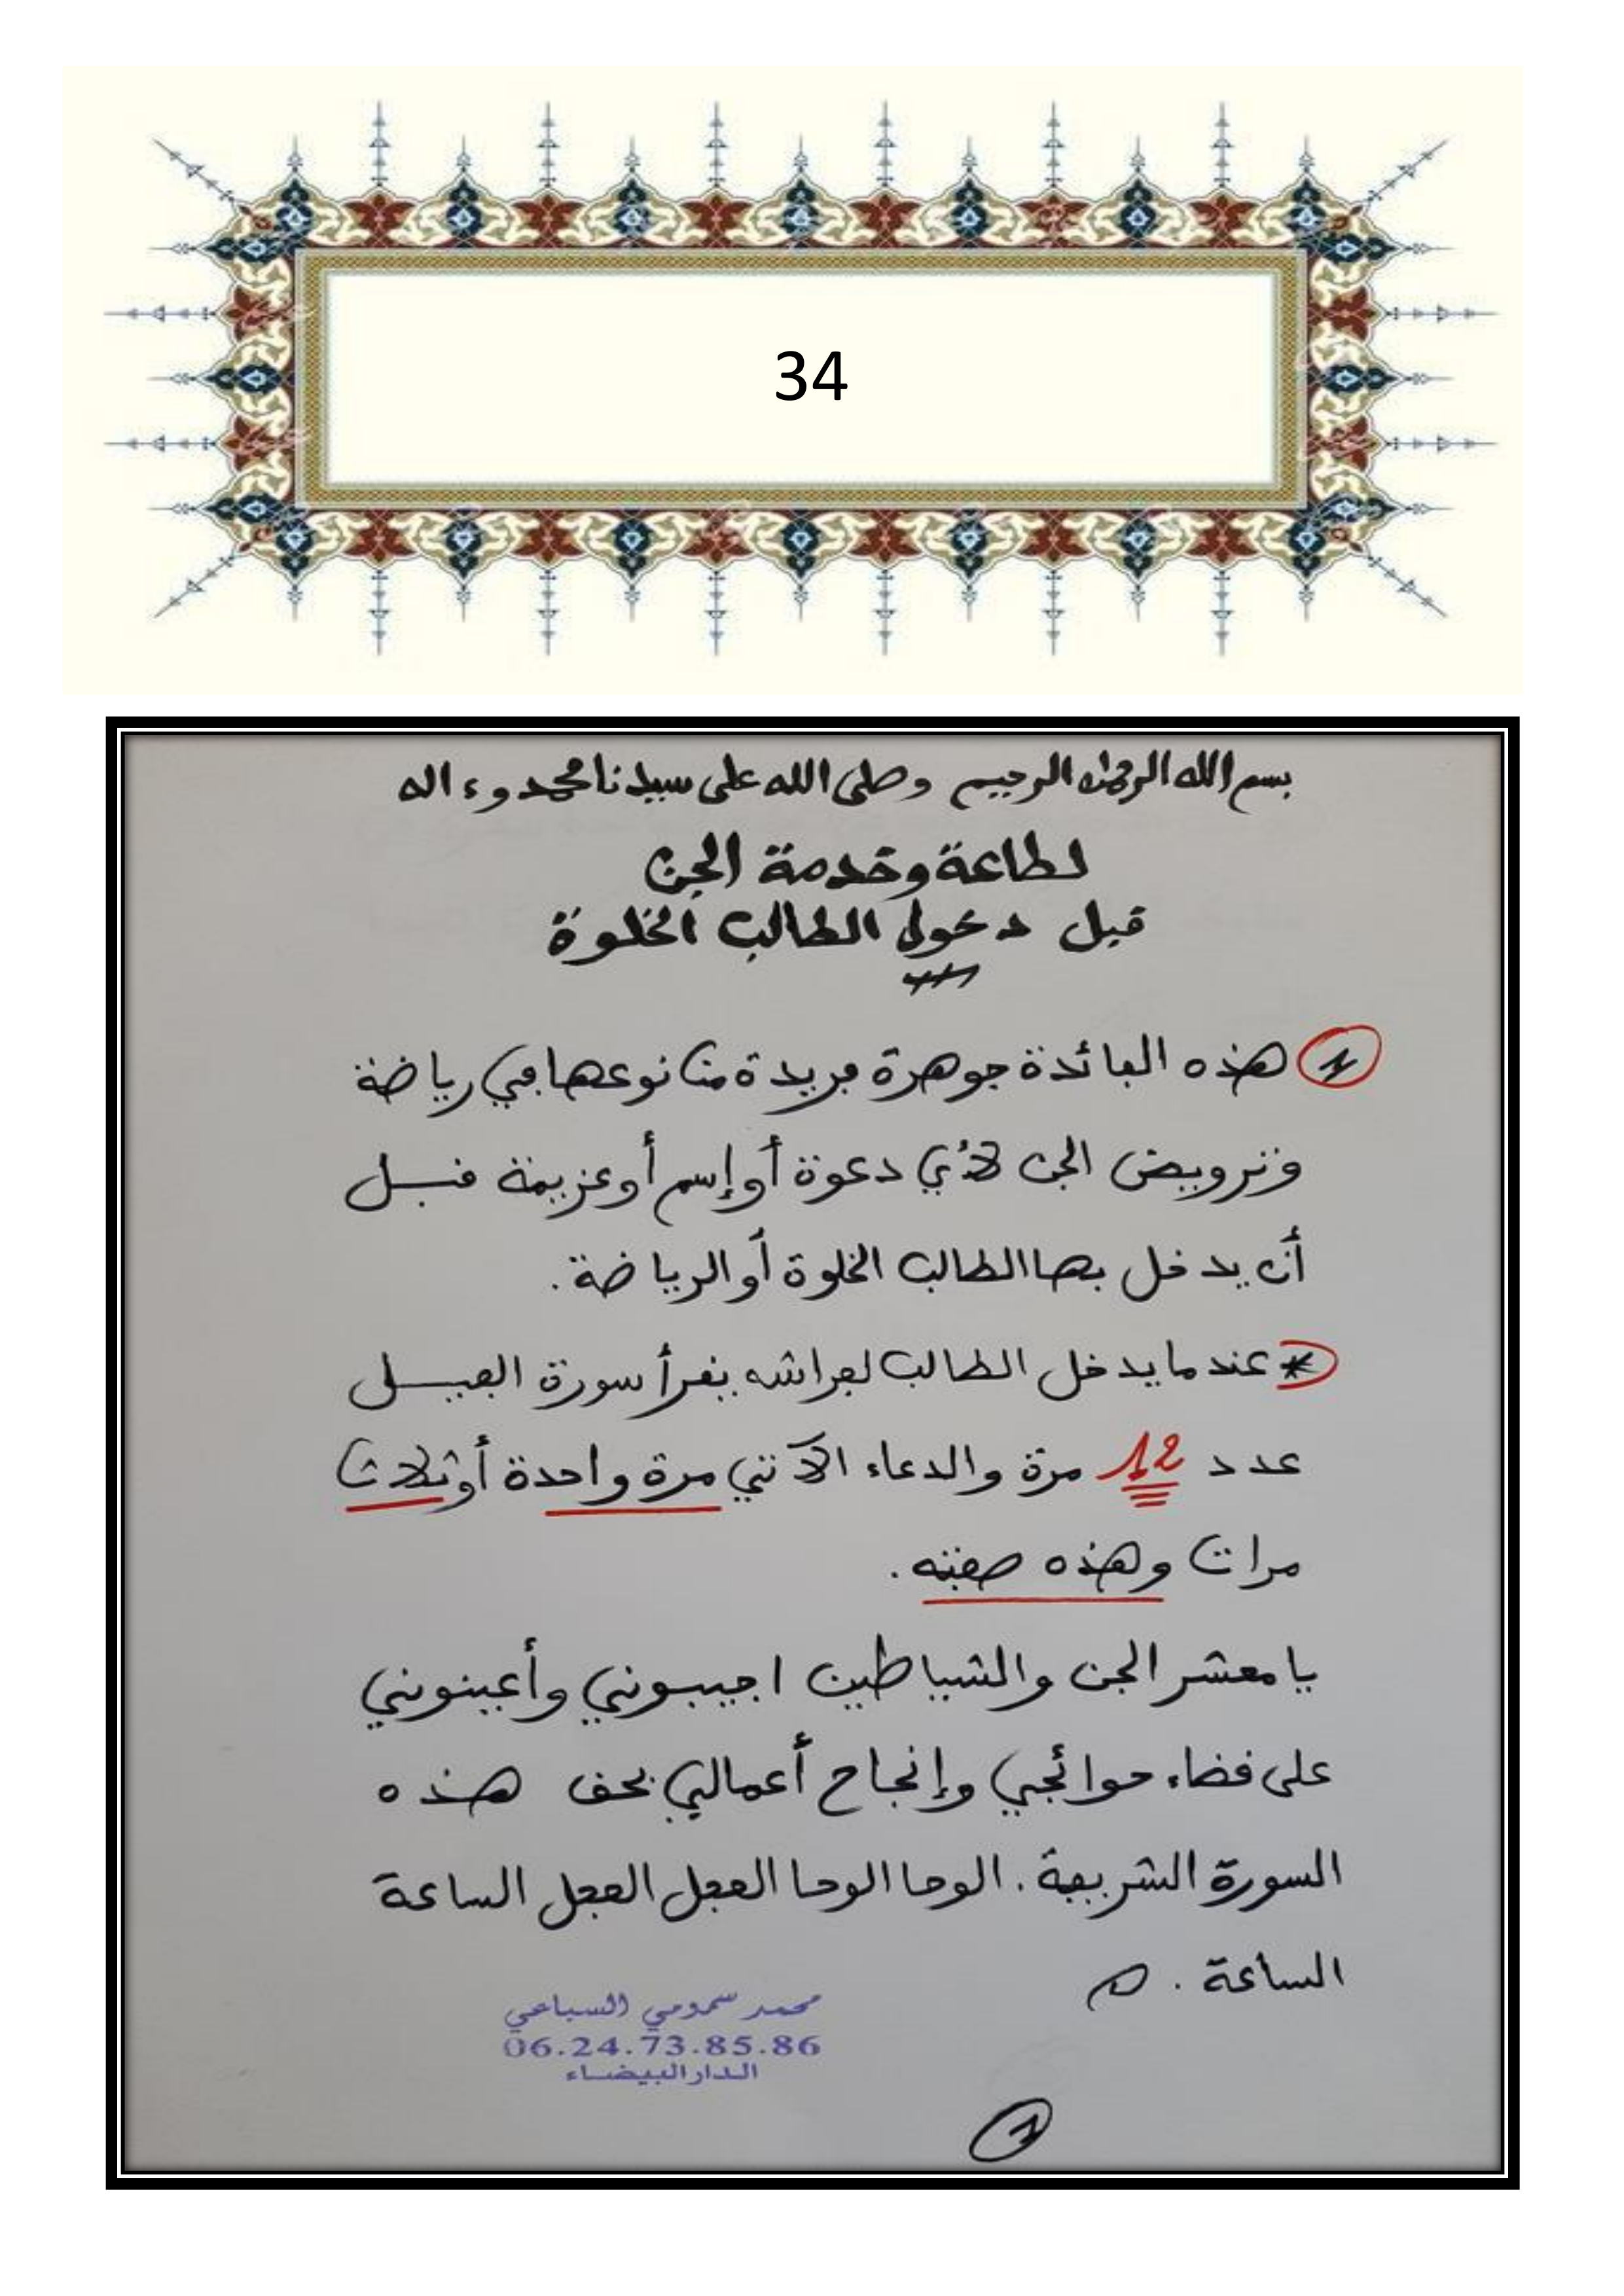 34
بسم الله الرحمان الرحيم وصلى الله على سيدنا محمد وءاله
لطاعة وخدمة الجن
قبل دخول الطالب الخلوة
هذه الفائدة جوهرة فريدة من نوعها في رياضة
وترويض الجن لأي دعوة أو إسم أو عزيمة قبل
أن يدخل بها الطالب الخلوة أو الرياضة.
* عندما يدخل الطالب لفراشه يقرأ سورة الفيل
عدد 12 مرة والدعاء الآتي مرة واحدة أو ثلاث
مرات وهذه صفته.
يا معشر الجن والشياطين اجيبوني وأعينوني
على قضاء حوائجي وإنجاح أعمالي بحق هذه
السورة الشريفة. الوحا الوحا العجل العجل الساعة
الساعة.
محمد سمومي السباعي
06.24.73.85.86
الدار البيضاء
1